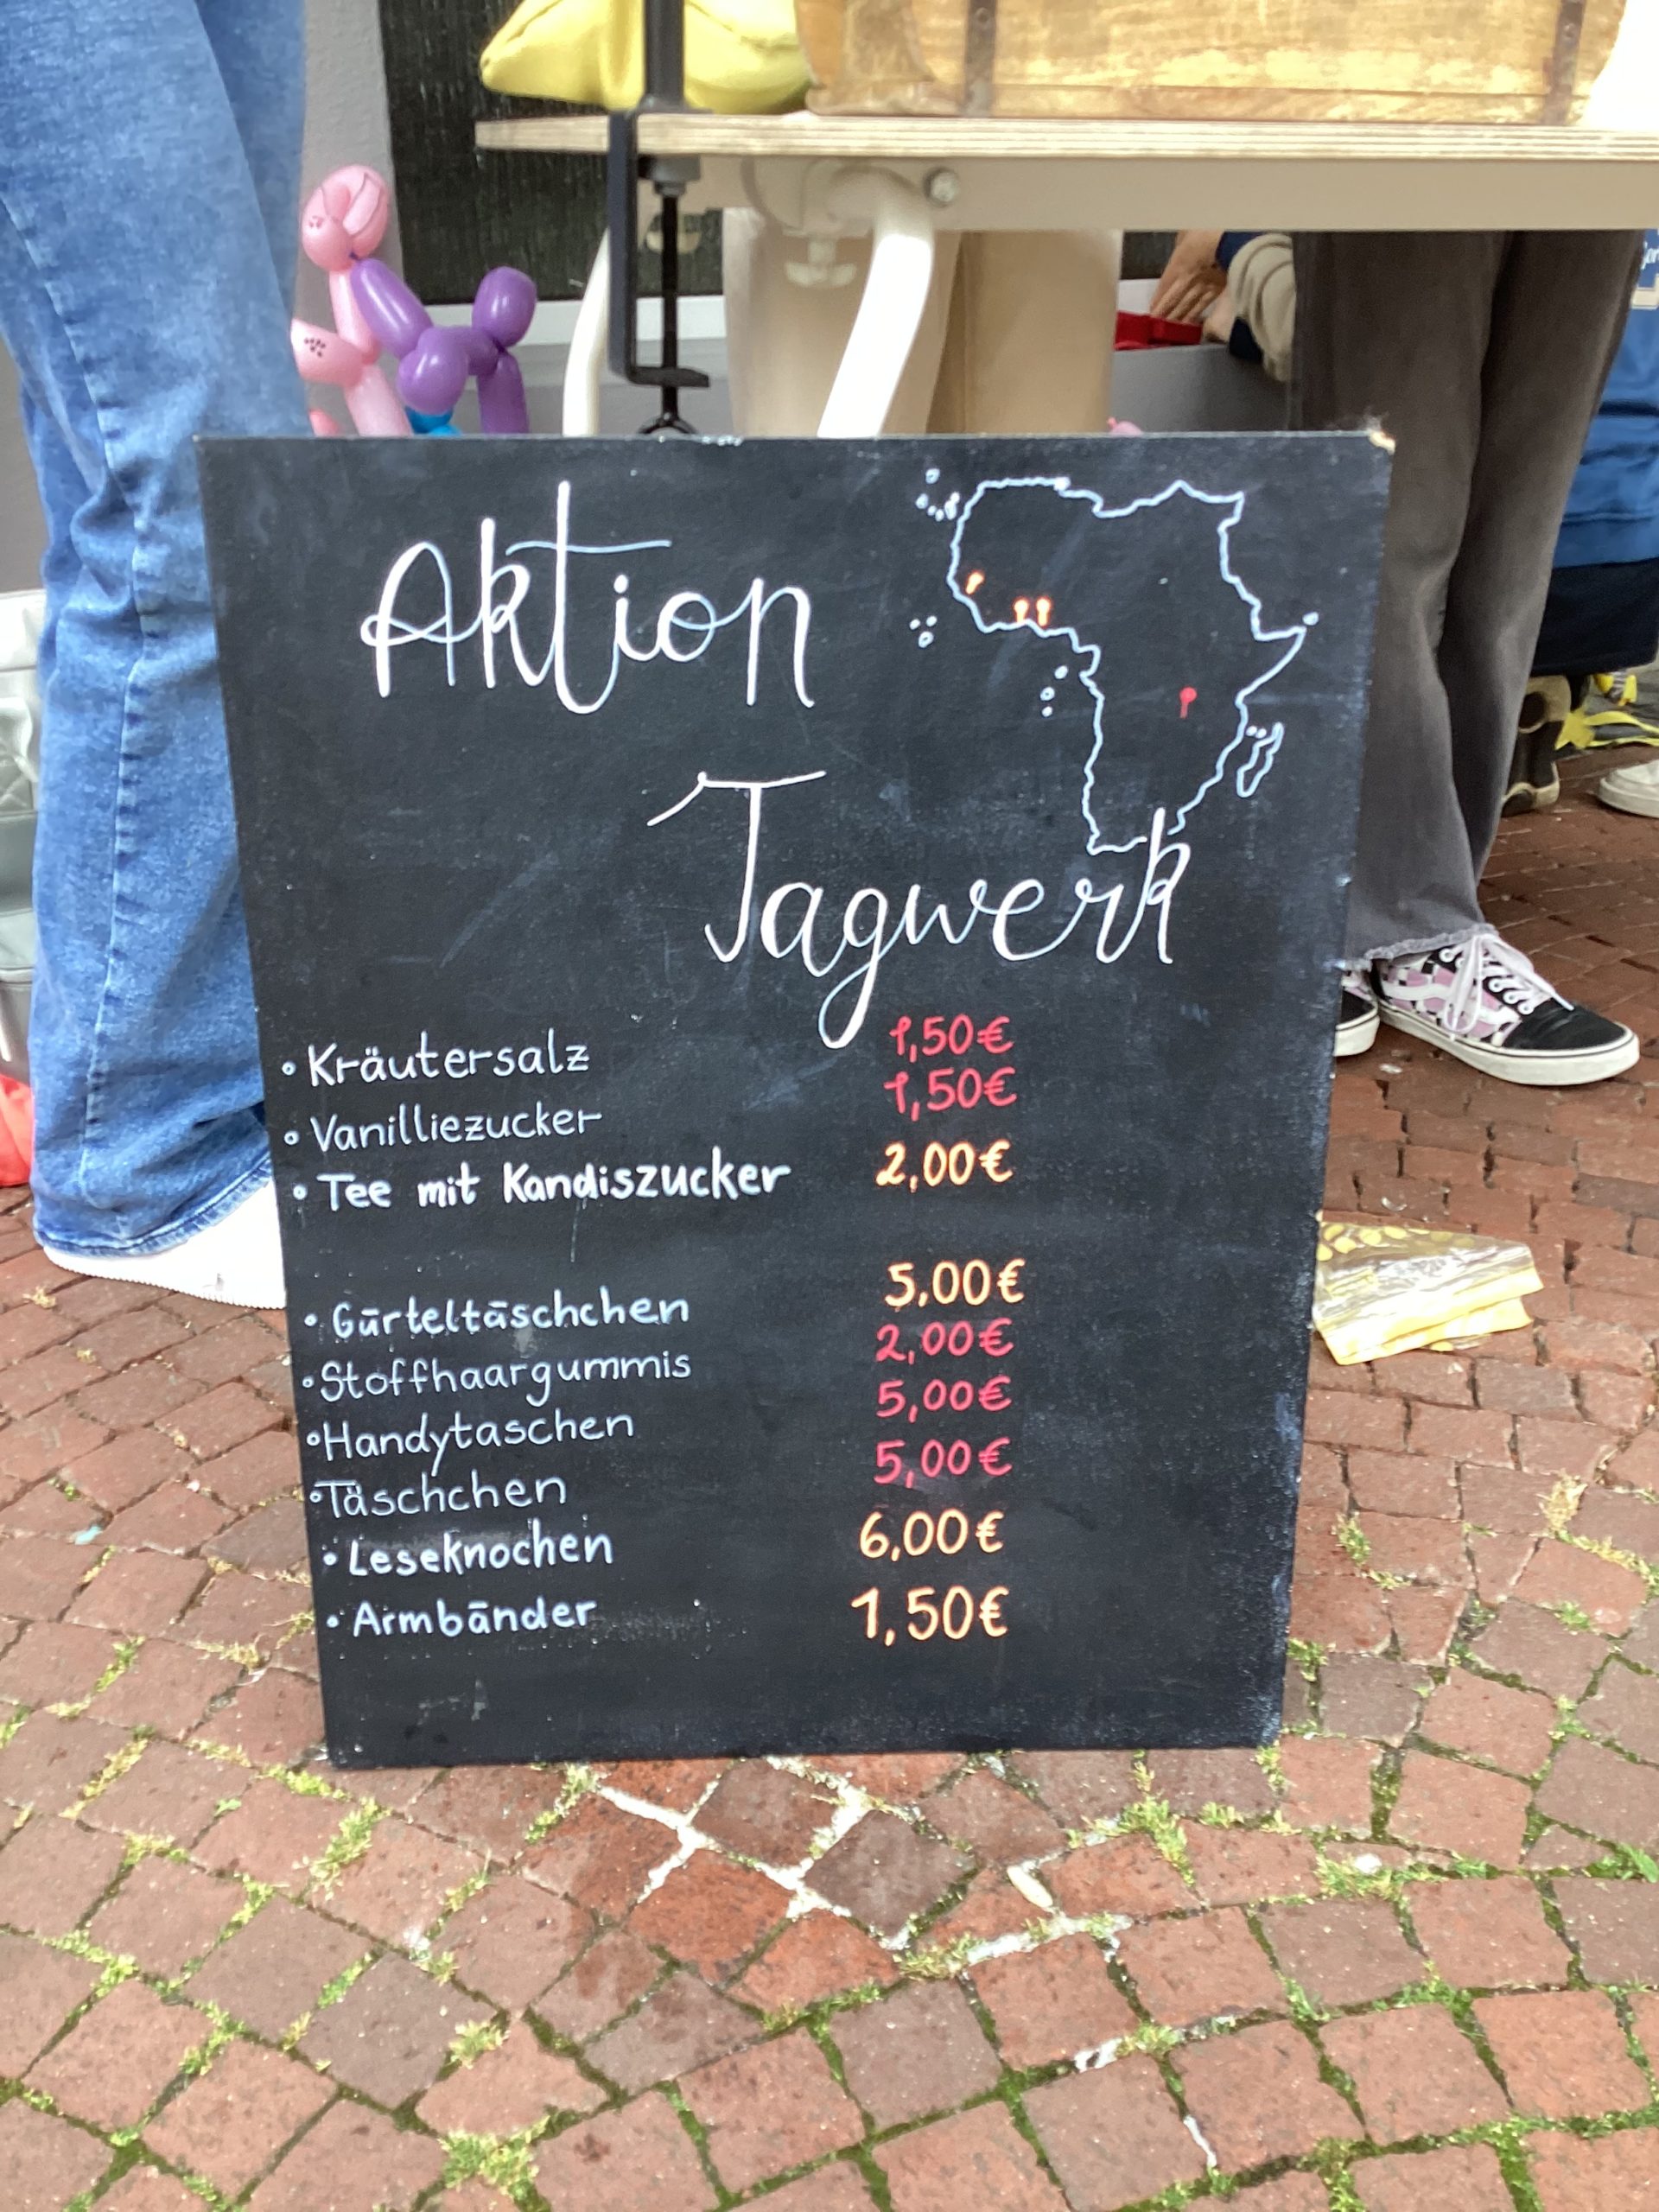 Aktion
Tagwerk
• Kräutersalz 1,50€
• Vanilliezucker 1,50€
• Tee mit Kandiszucker 2,00€
• Gürteltäschchen 5,00€
• Stoffhaargummis 2,00€
• Handytaschen 5,00€
• Täschchen 5,00€
• Leseknochen 6,00€
• Armbänder 1,50€